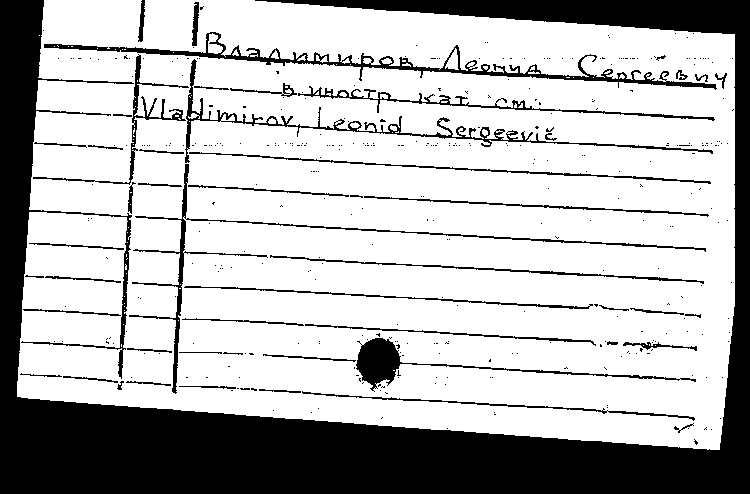 Владимиров, Леонид Сергеевич
в иностр. кат. см.
Vladimirov, Leonid Sergeevič